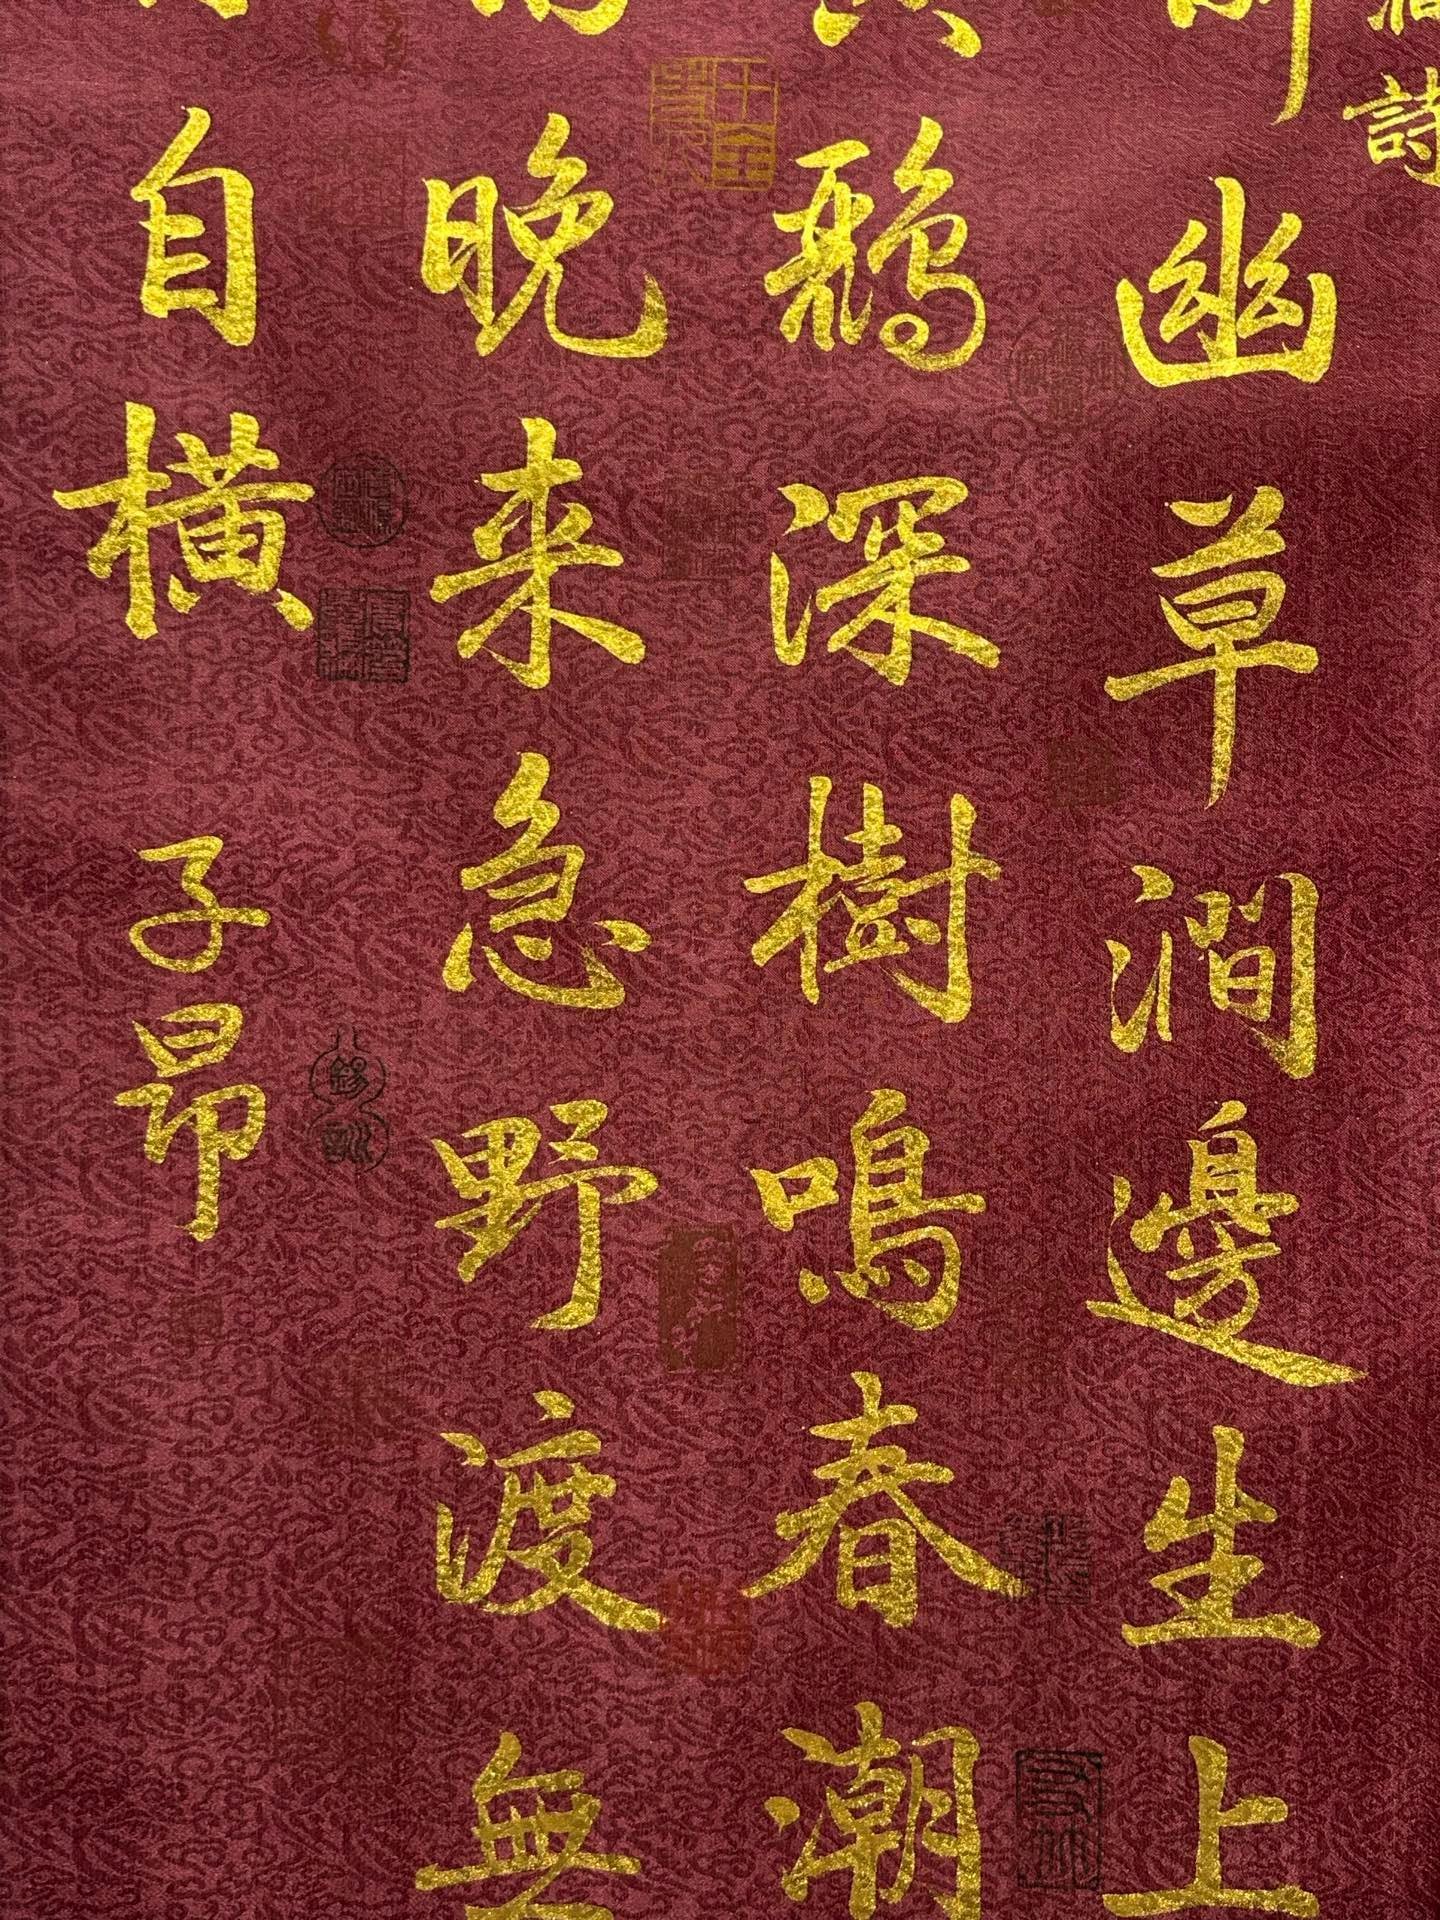 詩
幽草澗邊生上
鸝深樹鳴春潮
晚来急野渡無
自橫
子昂